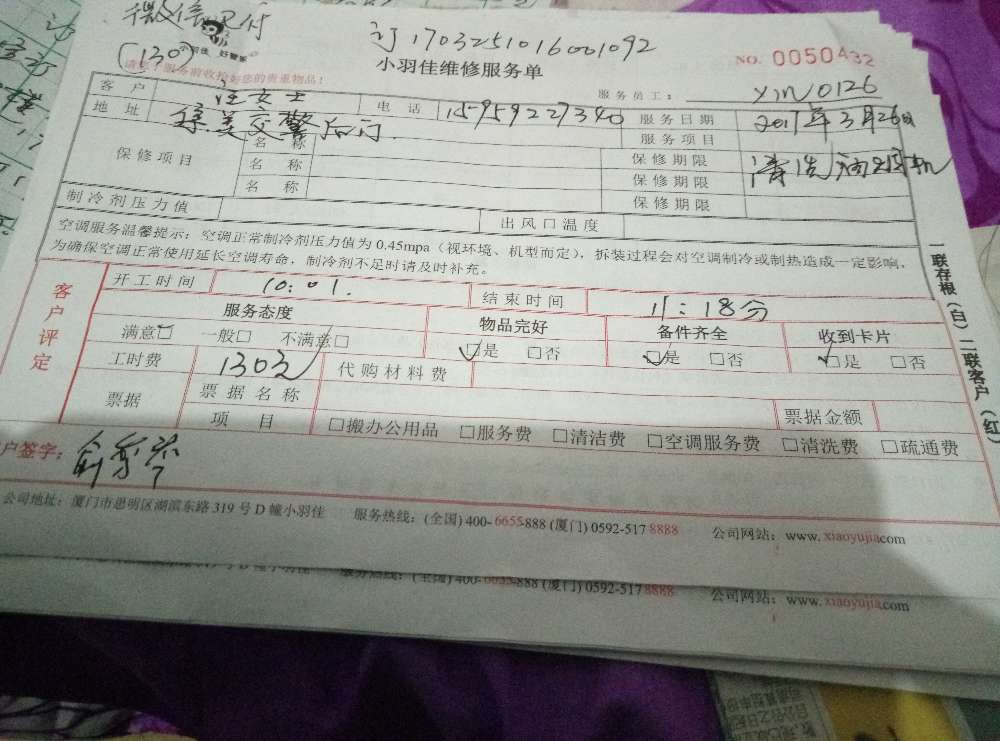 微信支付
(130)
订1703251016001092
小羽佳 好管家
小羽佳维修服务单
NO. 0050432
您的贵重物品！
服务员工： XM0126
客户 汪女士 电话 15959227340 服务日期 2017年3月26日
地址 交警后门 服务项目 清洗油烟机
保修项目 名称 保修期限
名称 保修期限
名称 保修期限
制冷剂压力值 出风口温度
空调服务温馨提示：空调正常制冷剂压力值为0.45mpa（视环境、机型而定），拆装过程会对空调制冷或制热造成一定影响，
为确保空调正常使用延长空调寿命，制冷剂不足时请及时补充。
客户评定
开工时间 10:01. 结束时间 11:18分
服务态度 物品完好 备件齐全 收到卡片
满意□ 一般□ 不满意□ □是 □否 □是 □否 □是 □否
工时费 130元 代购材料费
票据 票据名称 票据金额
项目 □搬办公用品 □服务费 □清洁费 □空调服务费 □清洗费 □疏通费
户签字：
公司地址：厦门市思明区湖滨东路319号D幢小羽佳 服务热线：(全国) 400-6655-888 (厦门) 0592-517 8888 公司网站：www.xiaoyujia.com
一联存根（白）二联客户（红）
服务热线：(全国) 400-6655-888 (厦门) 0592-517 8888 公司网站：www.xiaoyujia.com